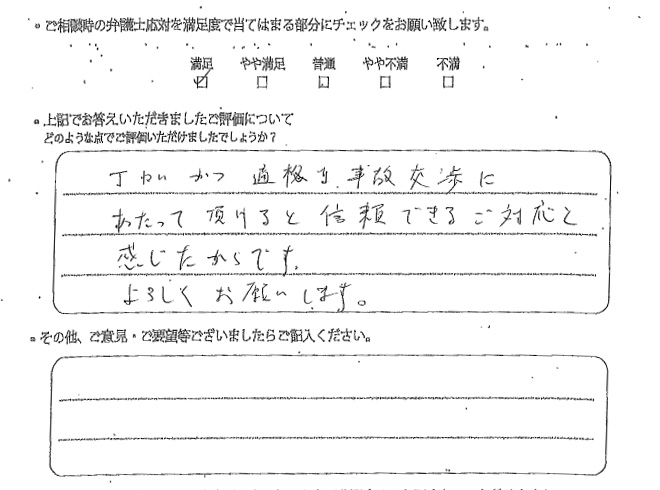 ・ご相談時の弁護士応対を満足度で当てはまる部分にチェックをお願い致します。
満足 やや満足 普通 やや不満 不満
☑ □ □ □ □
・上記でお答えいただきましたご評価について
どのような点でご評価いただけましたでしょうか?
丁ねいかつ適格な事故交渉に
あたって頂けると信頼できるご対応と
感じたからです。
よろしくお願いします。
・その他、ご意見・ご要望等ございましたらご記入ください。